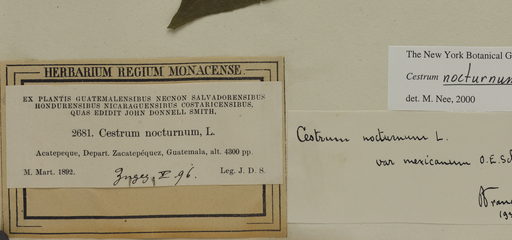 HERBARIUM REGIUM MONACENSE.
EX PLANTIS GUATEMALENSIBUS NECNON SALVADORENSIBUS
HONDURENSIBUS NICARAGUENSIBUS COSTARICENSIBUS,
QUAS EDIDIT JOHN DONNELL SMITH.
2681. Cestrum nocturnum, L.
Acatepeque, Depart. Zacatepéquez, Guatemala, alt. 4300 pp.
M. Mart. 1892.
Leg. J. D. S.
The New York Botanical G
Cestrum nocturnum
det. M. Nee, 2000
Cestrum nocturnum L.
var mexicanum O.E.Sc